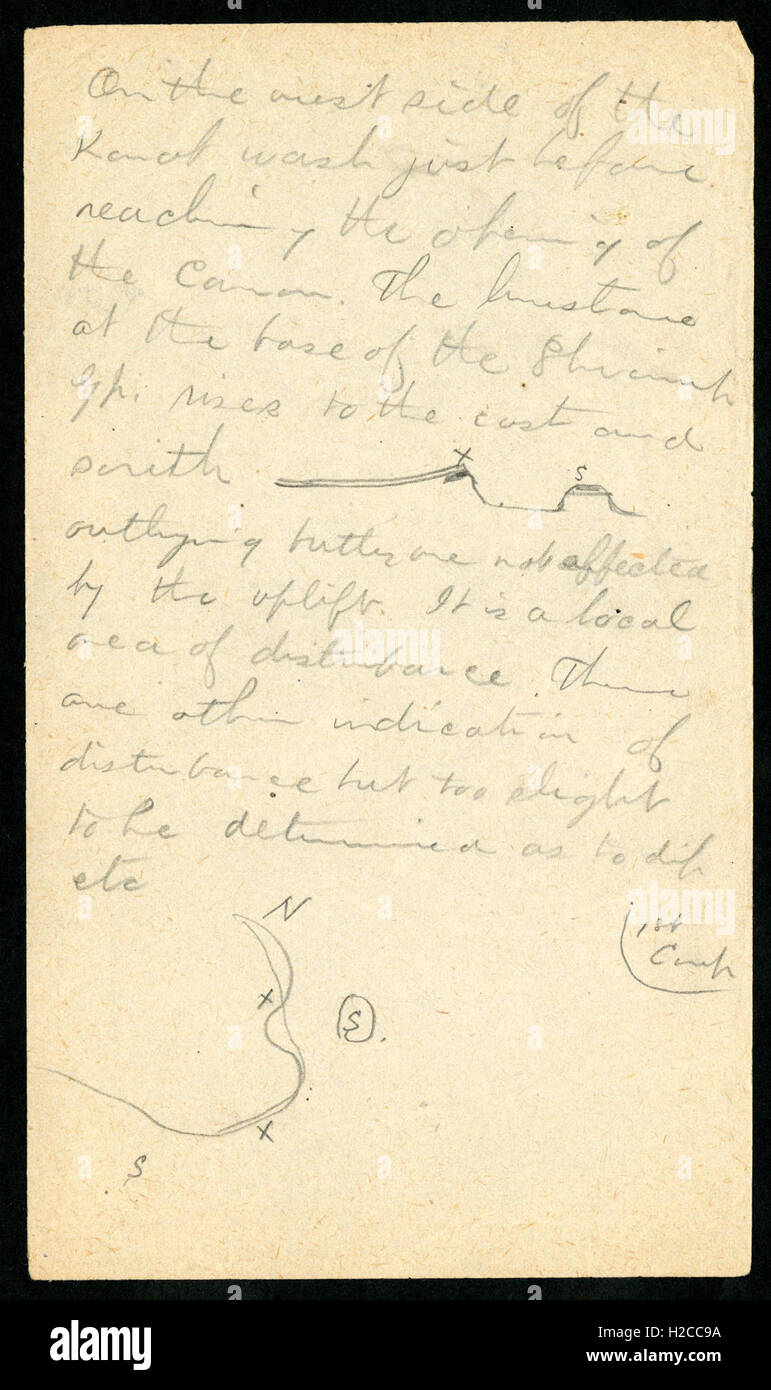 On the west side of the
Kanab wash just before
reaching the opening of
the Canon. The limestone
at the base of the Shinarump
Gp. rises to the east and
south
X
S
outlying buttes are not affected
by the uplift. It is a local
area of disturbance. There
are other indication of
disturbance but too slight
to be determined as to dip
etc
N
1st
Camp
X
S
X
S
alamy
www.alamy.com
Image ID: H2CC9A